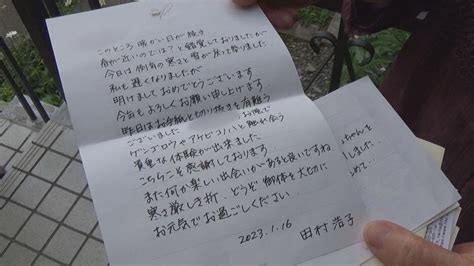 このところ暖かい日が続き
春が近いのでは?と錯覚しておりましたが
今日は例年の寒さと雪が戻って参りました。
私も遅くなりましたが
明けましておめでとうございます
今年もよろしくお願い申し上げます
昨日はお手紙と切り抜きを有難う
ございました
お陰で
ゲンゴロウやアケビコノハと触れ合う
貴重な体験が出来ました
こちらこそ感謝しております
また何か楽しい出会いがあると良いですね
寒さ厳しき折、どうぞ御体を大切に
お元気でお過ごしください
2023.1.16 田村浩子
ちゃんを
しました…
めて…